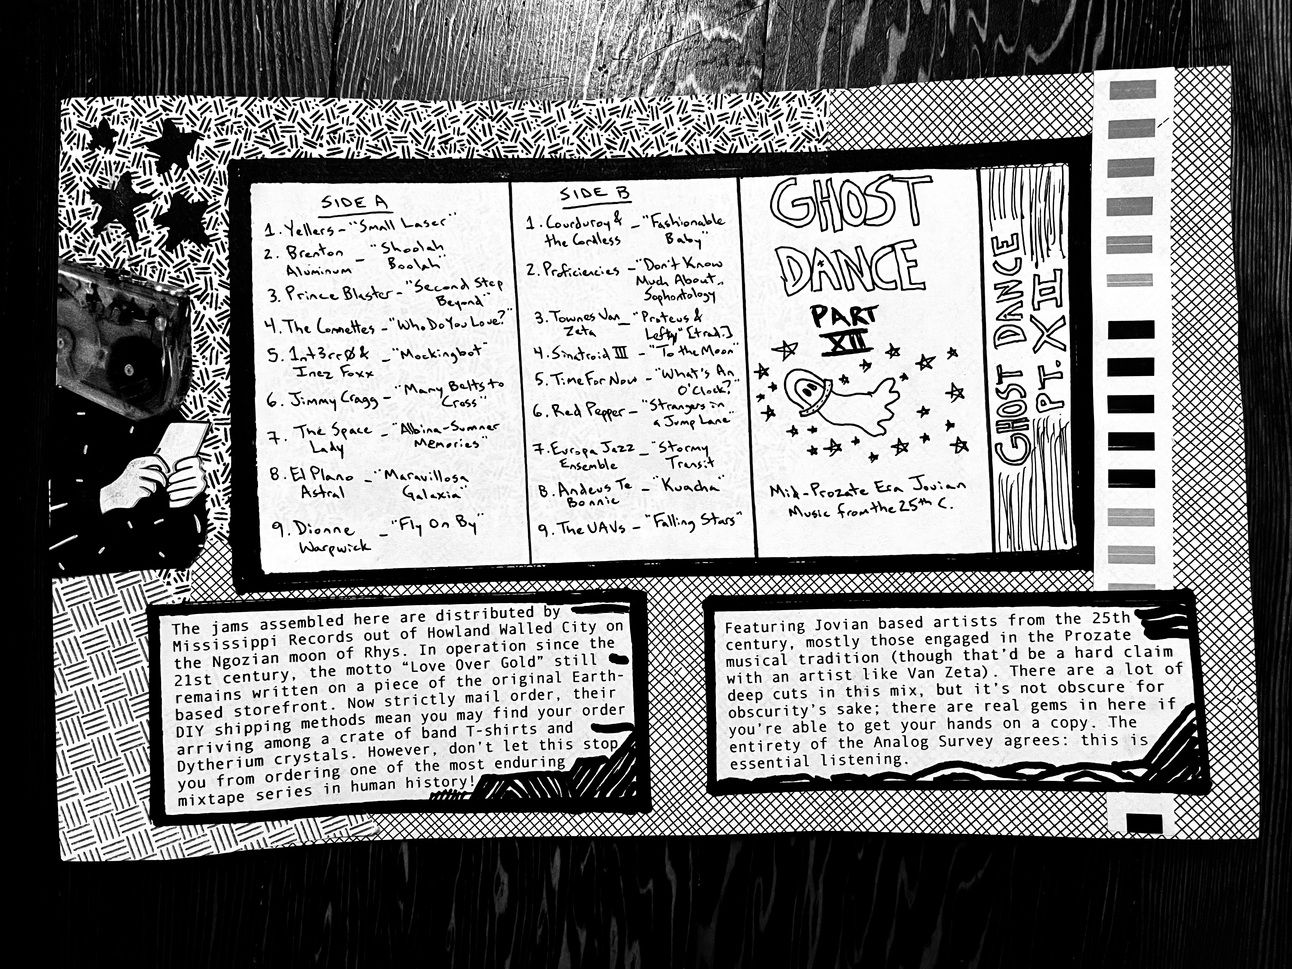 SIDE A
1. Yellers - "Small Laser"
2. Brenton - "Shoolah
Aluminum Boolah"
3. Prince Blaster - "Second Step
Beyond"
4. The Comettes - "Who Do You Love?"
5. 1nt3rr0 & - "Mockingbot"
Inez Foxx
6. Jimmy Cragg - "Many Belts to
Cross"
7. The Space - "Albina-Summer
Lady Memories"
8. El Plano - "Maravillosa
Astral Galaxia"
9. Dionne - "Fly On By"
Warpwick
SIDE B
1. Courduroy & - "Fashionable
the Cordless Baby"
2. Proficiencies - "Don't Know
Much About..
Sophontology
3. Townes Van - "Proteus &
Zeta Lefty" [trad.]
4. Sinatroid III - "To the Moon"
5. Time For Now - "What's An
O'Clock?"
6. Red Pepper - "Strangers in
a Jump Lane"
7. Europa Jazz - "Stormy
Ensemble Transit
8. Andeus Te - "Kuacha"
Bonnie
9. The UAVs - "Falling Stars"
GHOST
DANCE
PART
XII
Mid-Prozate Era Jovian
Music from the 25th C.
GHOST DANCE
PT. XII
The jams assembled here are distributed by
Mississippi Records out of Howland Walled City on
the Ngozian moon of Rhys. In operation since the
21st century, the motto “Love Over Gold” still
remains written on a piece of the original Earth-
based storefront. Now strictly mail order, their
DIY shipping methods mean you may find your order
arriving among a crate of band T-shirts and
Dytherium crystals. However, don't let this stop
you from ordering one of the most enduring
mixtape series in human history!
Featuring Jovian based artists from the 25th
century, mostly those engaged in the Prozate
musical tradition (though that'd be a hard claim
with an artist like Van Zeta). There are a lot of
deep cuts in this mix, but it's not obscure for
obscurity's sake; there are real gems in here if
you're able to get your hands on a copy. The
entirety of the Analog Survey agrees: this is
essential listening.